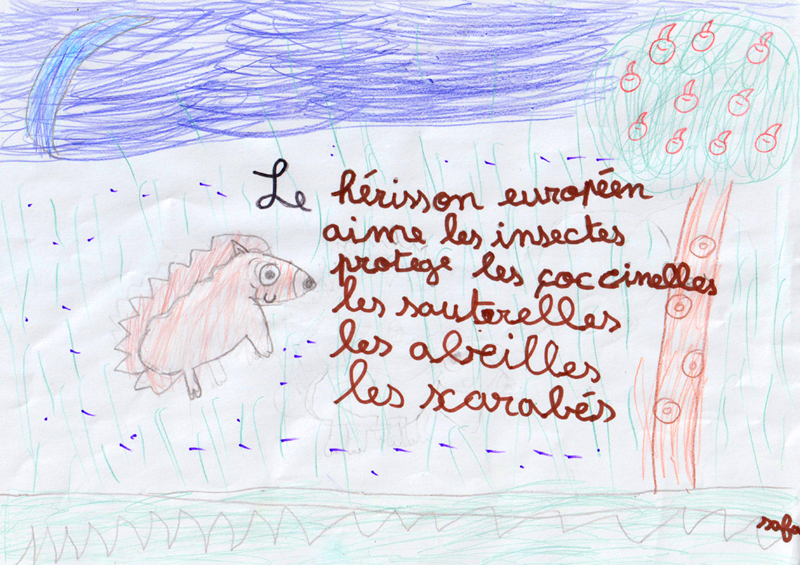 Le hérisson européen
aime les insectes
protège les çoccinelles
les sauterelles
les abeilles
les scarabés